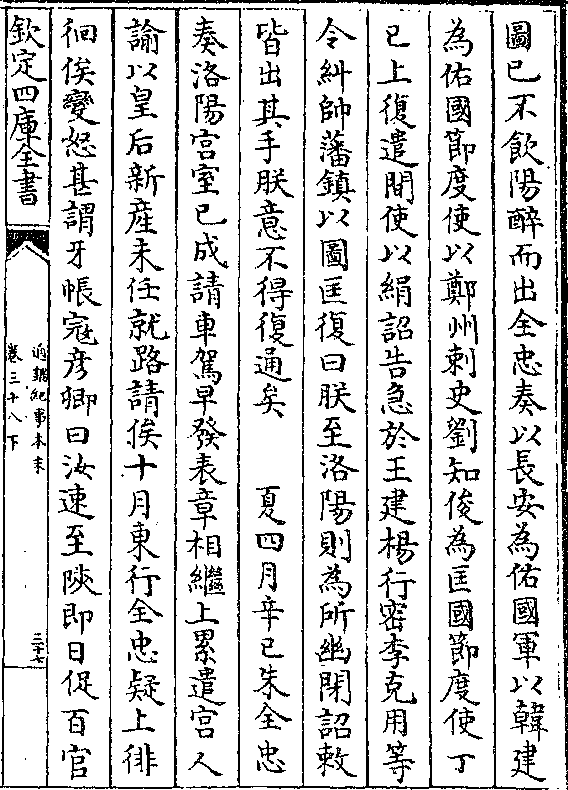 圖已不飲陽醉而出全忠奏以長安為佑國軍以韓建
為佑國節度使以鄭州刺史劉知俊為匡國節度使丁
已上復遣間使以絹詔告急於王建楊行密李克用等
令糾帥藩鎮以圖匡復曰朕至洛陽則為所幽閉詔敕
皆出其手朕意不得復通矣　夏四月辛已朱全忠
奏洛陽宫室已成請車駕早發表章相繼上累遣宫人
諭以皇后新産未任就路請俟十月東行全忠疑上徘
徊俟變怒甚謂牙帳寇彦卿曰汝速至陜即日促百官
欽定四庫全書
通鑑紀事本末
卷三十八下
三十七